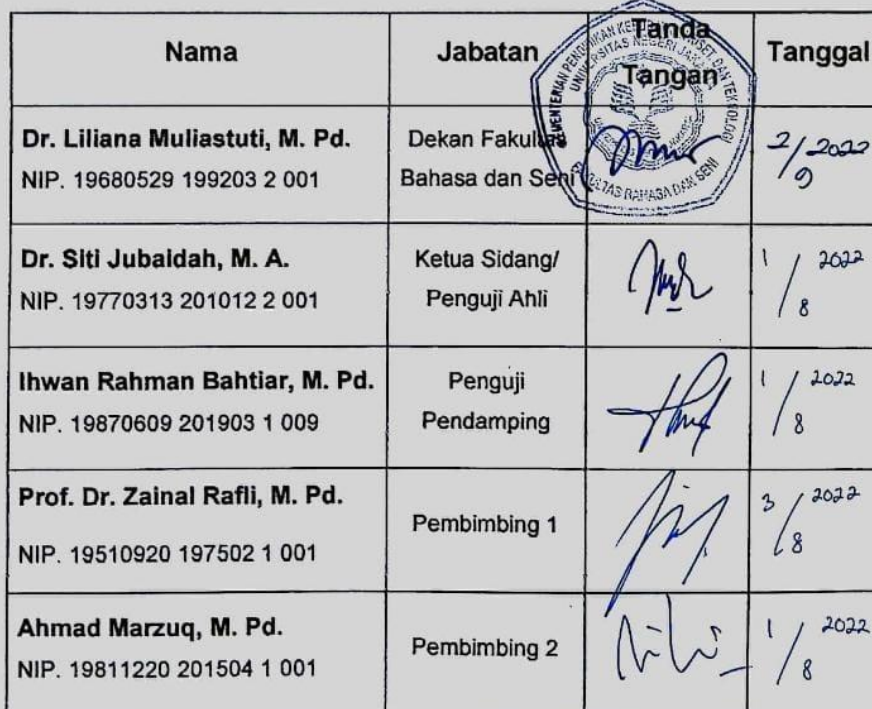 Nama Jabatan Tanda Tangan Tanggal
Dr. Liliana Muliastuti, M. Pd.
NIP. 19680529 199203 2 001
Dekan Fakultas
Bahasa dan Seni
2/9 2022
Dr. Siti Jubaidah, M. A.
NIP. 19770313 201012 2 001
Ketua Sidang/
Penguji Ahli
1/8 2022
Ihwan Rahman Bahtiar, M. Pd.
NIP. 19870609 201903 1 009
Penguji
Pendamping
1/8 2022
Prof. Dr. Zainal Rafli, M. Pd.
NIP. 19510920 197502 1 001
Pembimbing 1
3/8 2022
Ahmad Marzuq, M. Pd.
NIP. 19811220 201504 1 001
Pembimbing 2
1/8 2022
UNIVERSITAS NEGERI JAKARTA
FAKULTAS BAHASA DAN SENI